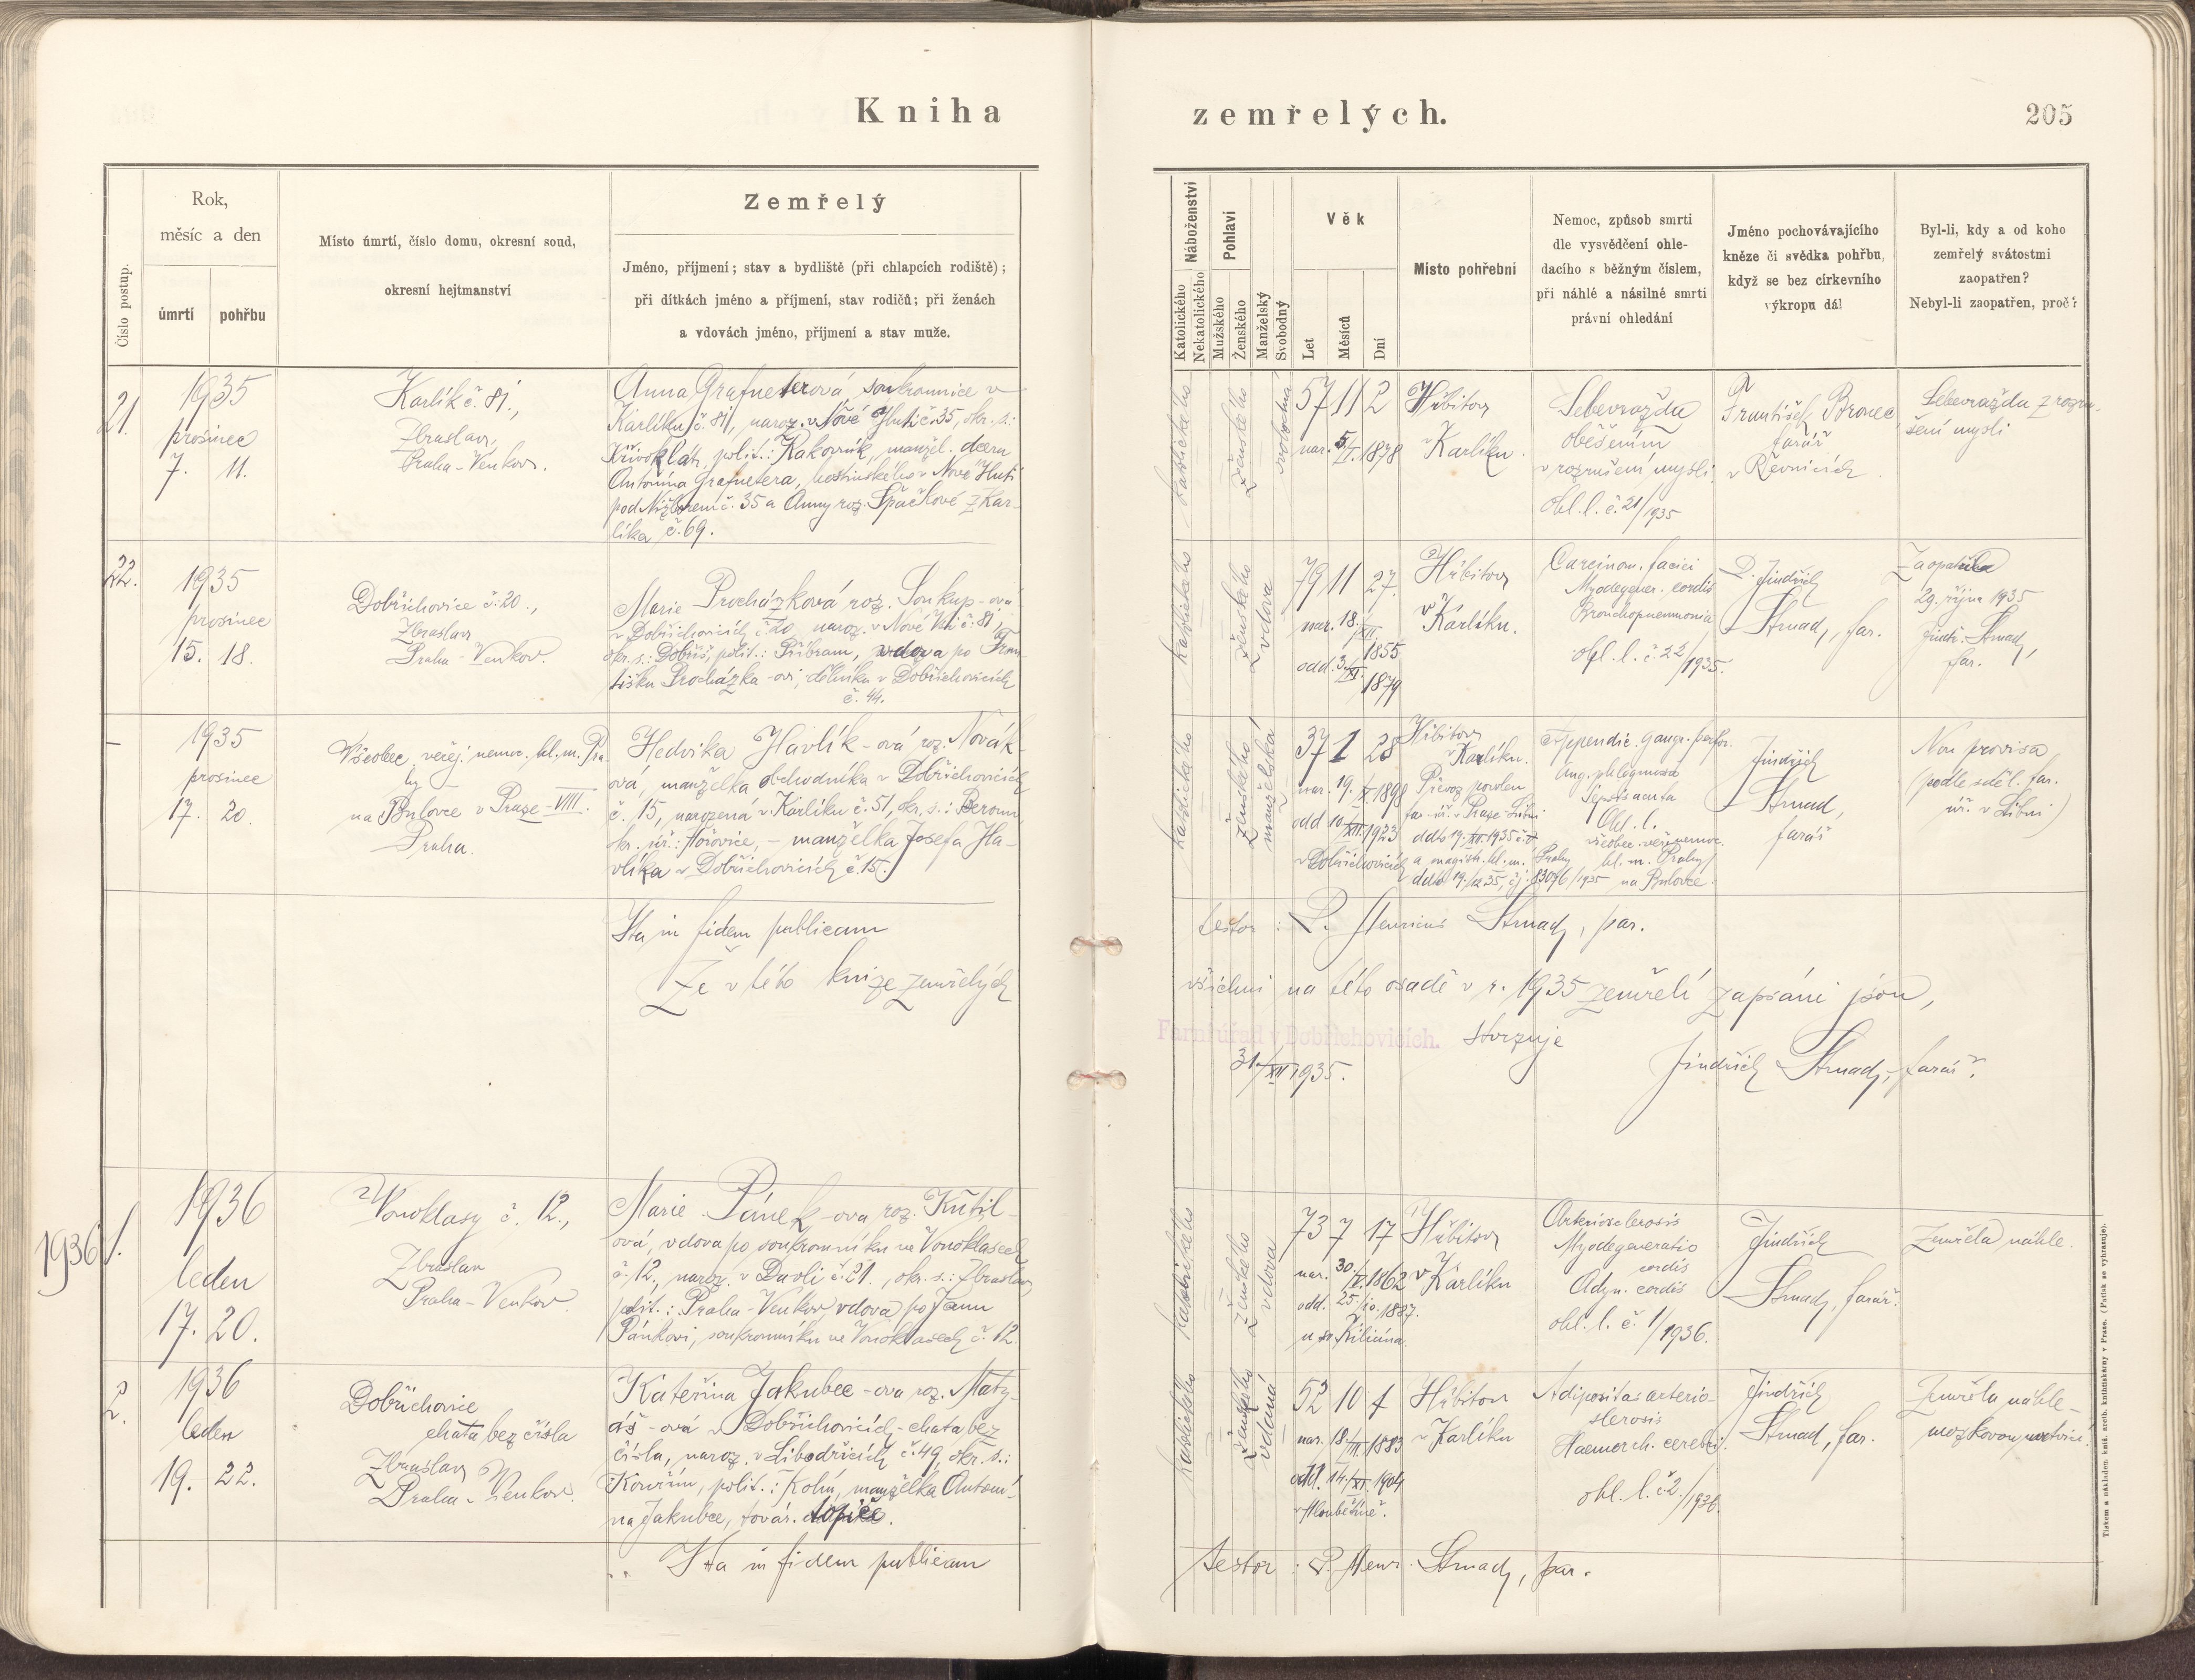 Kniha
zemřelých.
205
Číslo postup.
Rok,
měsíc a den
úmrtí
pohřbu
Místo úmrtí, číslo domu, okresní soud,
okresní hejtmanství
Zemřelý
Jméno, příjmení; stav a bydliště (při chlapcích rodiště);
při dítkách jméno a příjmení, stav rodičů; při ženách
a vdovách jméno, příjmení a stav muže.
Náboženství
Katolického
Nekatolického
Pohlaví
Mužského
Ženského
Manželský
Svobodný
Věk
Let
Měsíců
Dní
Místo pohřební
Nemoc, způsob smrti
dle vysvědčení ohle-
dacího s běžným číslem,
při náhlé a násilné smrti
právní ohledání
Jméno pochovávajícího
kněze či svědka pohřbu,
když se bez církevního
výkropu dál
Byl-li, kdy a od koho
zemřelý svátostmi
zaopatřen?
Nebyl-li zaopatřen, proč?
21.
1935
prosinec
7. 11.
Karlík č. 81.,
Zbraslav,
Praha-Venkov.
Anna Grafneterová, soukromnice v
Karlíku č. 81, naroz. v Nové Huti č. 35, okr. s.:
Křivoklát, polit.: Rakovník, manžel. dcera
Antonína Grafnetera, hostinského v Nové Huti
pod Nižborem č. 35 a Anny roz. Špačkové z Kar-
líka č. 69.
katolického
ženského
svobodná
57 11 2
nar. 5./I. 1878
Hřbitov
v Karlíku.
Sebevražda
oběšením
v rozrušení mysli
ohl. l. č. 21/1935
P.
František Bronec,
farář
v Řevnicích.
Sebevražda z rozru-
šení mysli
22.
1935
prosinec
15. 18.
Dobřichovice č. 20.,
Zbraslav
Praha-Venkov.
Marie Procházková roz. Soukup-ová
v Dobřichovicích č. 20, naroz. v Nové Vsi č. 81,
okr. s.: Dobříš, polit.: Příbram, vdova po Fran-
tišku Procházka-ovi, dělníku v Dobřichovicích
č. 44.
katolického
ženského
vdova
79 11 27.
nar. 18./XII. 1855
odd. 3./XI. 1879
Hřbitov
v Karlíku.
Carcinom. faciei
Myodegener. cordis
Bronchopneumonia
ohl. l. č. 22/1935.
P. Jindřich
Strnad, far.
Zaopatřena
29. října 1935
Jindř. Strnad,
far.
–
1935
prosinec
17. 20.
Všeobec. veřej. nemoc. hl. m. Pra-
hy
na Bulovce v Praze-VIII.
Praha.
Hedvika Havlík-ová roz. Novák-
ová, manželka obchodníka v Dobřichovicích
č. 15, narozená v Karlíku č. 51, okr. s.: Beroun,
okr. úř.: Hořovice, – manželka Josefa Ha-
vlíka v Dobřichovicích č. 15.
katolického
ženského
manželská
37 1 28
nar. 19./X. 1898
odd. 10./XII. 1923
v Dobřichovicích
Hřbitov
v Karlíku.
Převoz povolen
far. úř. v Praze-Libni
ddto 19./XII. 1935
a magistr. hl. m. Prahy
ddto 19./12 35, čj. 83076/1935
Appendic. gangr. perfor.
Ang. phlegmosa
Sepsis acuta
Ohl. l.
všeobec. veř. nemoc.
hl. m. Prahy
na Bulovce.
Jindřich
Strnad,
farář
Non provisa
(podle sděl. far.
úř. v Libni)
Ita in fidem publicam
testor: P. Henricus Strnad, par.
Že v této knize zemřelých
všichni na této osadě v r. 1935 zemřelí zapsáni jsou,
Farní úřad v Dobřichovicích.
stvrzuje
31./XII 1935.
Jindřich Strnad, farář.
1936
1.
1936
leden
17. 20.
Vonoklasy č. 12.,
Zbraslav
Praha-Venkov.
Marie Pánek-ová roz. Kutil-
ová, vdova po soukromníku ve Vonoklasech
č. 12, naroz. v Davli č. 21., okr. s.: Zbraslav
polit.: Praha-Venkov vdova po Janu
Pánkovi, soukromníku ve Vonoklasech č. 12
katolického
ženského
vdova
73 7 17
nar. 30./V. 1862
odd. 25./10. 1887.
u sv. Kiliána.
Hřbitov
v Karlíku
Arteriosclerosis
Myodegeneratio
cordis
Adyn. cordis
ohl. l. č. 1/1936.
Jindřich
Strnad, farář.
Zemřela náhle.
2.
1936
leden
19. 22.
Dobřichovice
chata bez čísla
Zbraslav
Praha-Venkov.
Kateřina Jakubec-ova roz. Maty-
áš-ová v Dobřichovicích-chata bez
čísla, naroz. v Libodřicích č. 49, okr. s.:
Kouřim, polit.: Kolín, manželka Antoní-
na Jakubce, továr. topiče.
katolického
ženského
vdaná
52 10 1
nar. 18./III. 1883
odd. 14./XI. 1904
v Hloubětíně.
Hřbitov
v Karlíku
Adipositas arterio-
slerosis
Haemorrh. cerebri.
ohl. l. č. 2./1936.
Jindřich
Strnad, far.
Zemřela náhle-
mozkovou mrtvicí.
Ita in fidem publicam
testor: P. Henr. Strnad, par.
Tiskem a nákladem kníž. arcib. knihtiskárny v Praze. (Patisk se vyhrazuje).